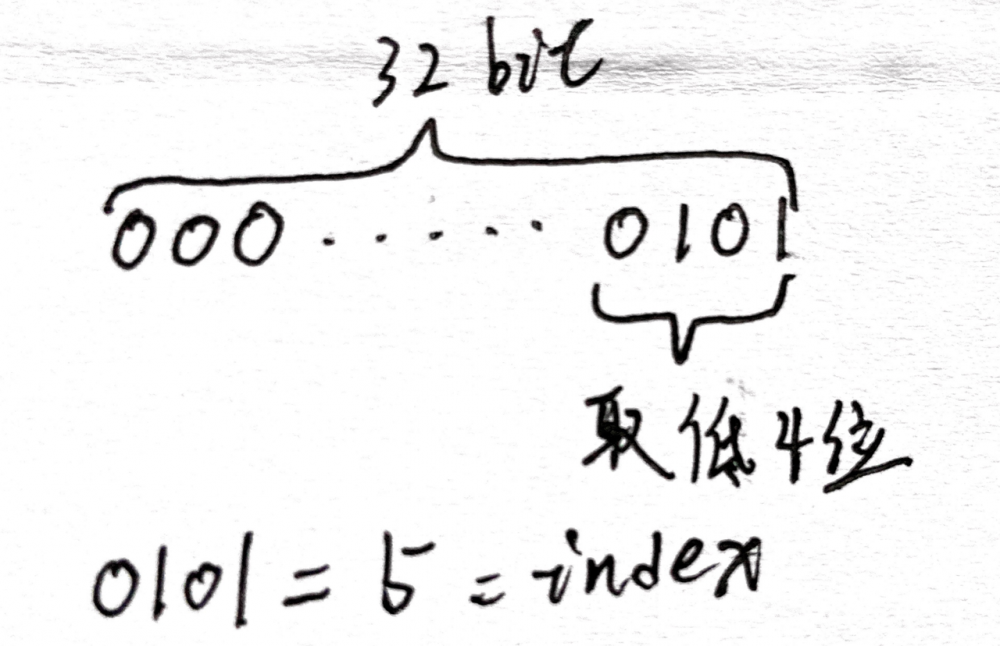 32 bit
000 ...... 0101
取低4位
0101 = 5 = index